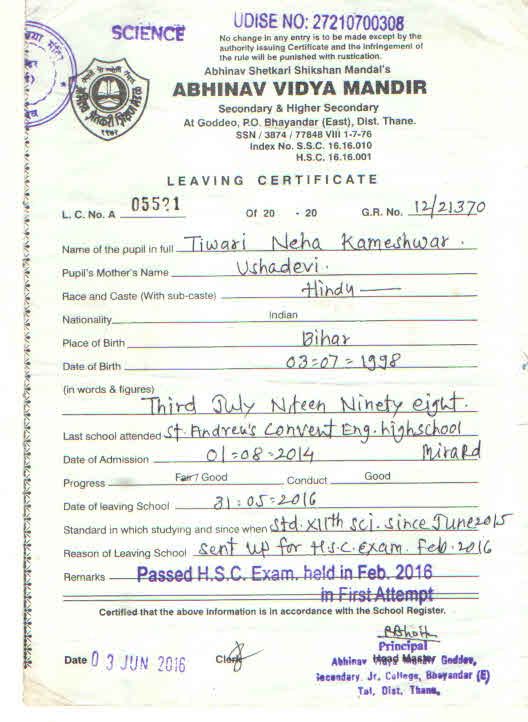 UDISE NO: 27210700308
SCIENCE
No change in any entry is to be made except by the
authority issuing Certificate and the infringement of
the rule will be punished with rustication.
Abhinav Shetkari Shikshan Mandal's
ABHINAV VIDYA MANDIR
Secondary & Higher Secondary
At Goddeo, P.O. Bhayandar (East), Dist. Thane.
SSN / 3874 / 77848 VIII 1-7-76
Index No. S.S.C. 16.16.010
H.S.C. 16.16.001
LEAVING CERTIFICATE
L. C. No. A 05521 Of 20 - 20 G.R. No. 12/21370
Name of the pupil in full Tiwari Neha Kameshwar.
Pupil's Mother's Name Ushadevi.
Race and Caste (With sub-caste) Hindu
Nationality Indian
Place of Birth Bihar
Date of Birth 03=07=1998
(in words & figures)
Third July Niteen Ninety eight.
Last school attended St. Andreu's Convent Eng. highschool
Date of Admission 01=08=2014 MiraRd
Progress Fair / Good Conduct Good
Date of leaving School 31:05=2016
Standard in which studying and since when Std. XIIth Sci. Since June 2015
Reason of Leaving School Sent up for H.S.C. Exam. Feb. 2016
Remarks Passed H.S.C. Exam. held in Feb. 2016
in First Attempt
Certified that the above information is in accordance with the School Register.
Principal
Date 03 JUN 2016 Clerk Abhinav Head Master Goddeo,
Secondary. Jr. College, Bhayandar (E)
Tal, Dist. Thane.